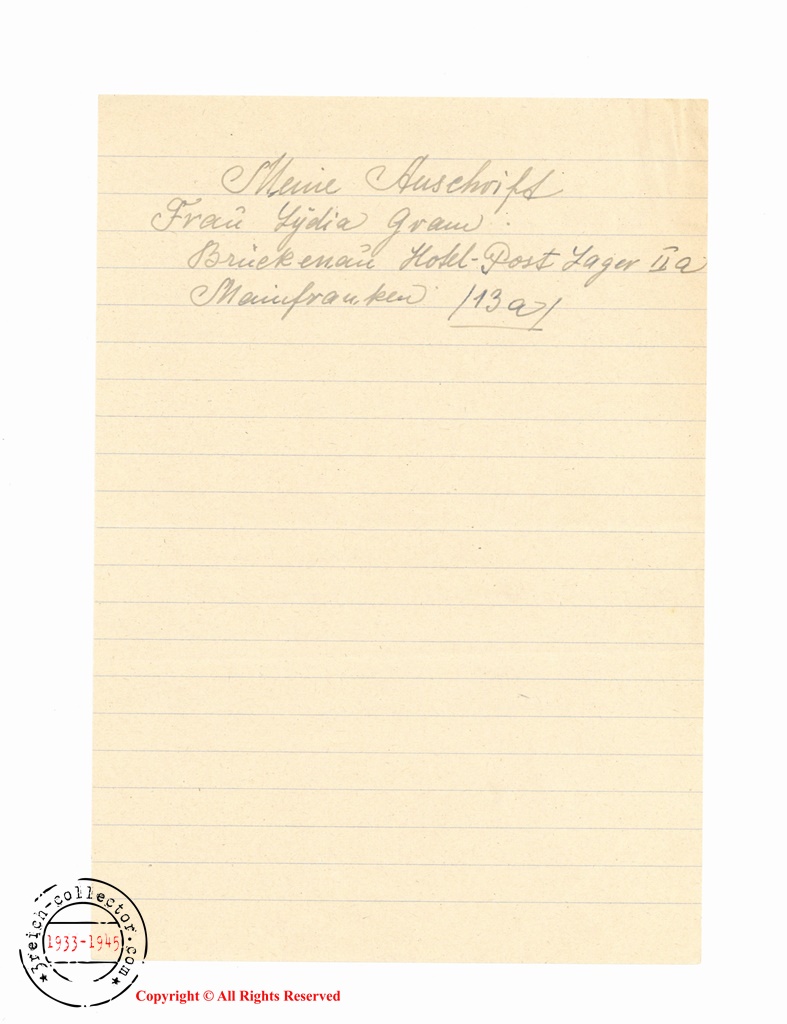 Meine Anschrift
Frau Lydia Gram.
Brückenau Hotel-Post Lager IIa
Mainfranken /13a/
3reich-collector.com
1933-1945
Copyright © All Rights Reserved